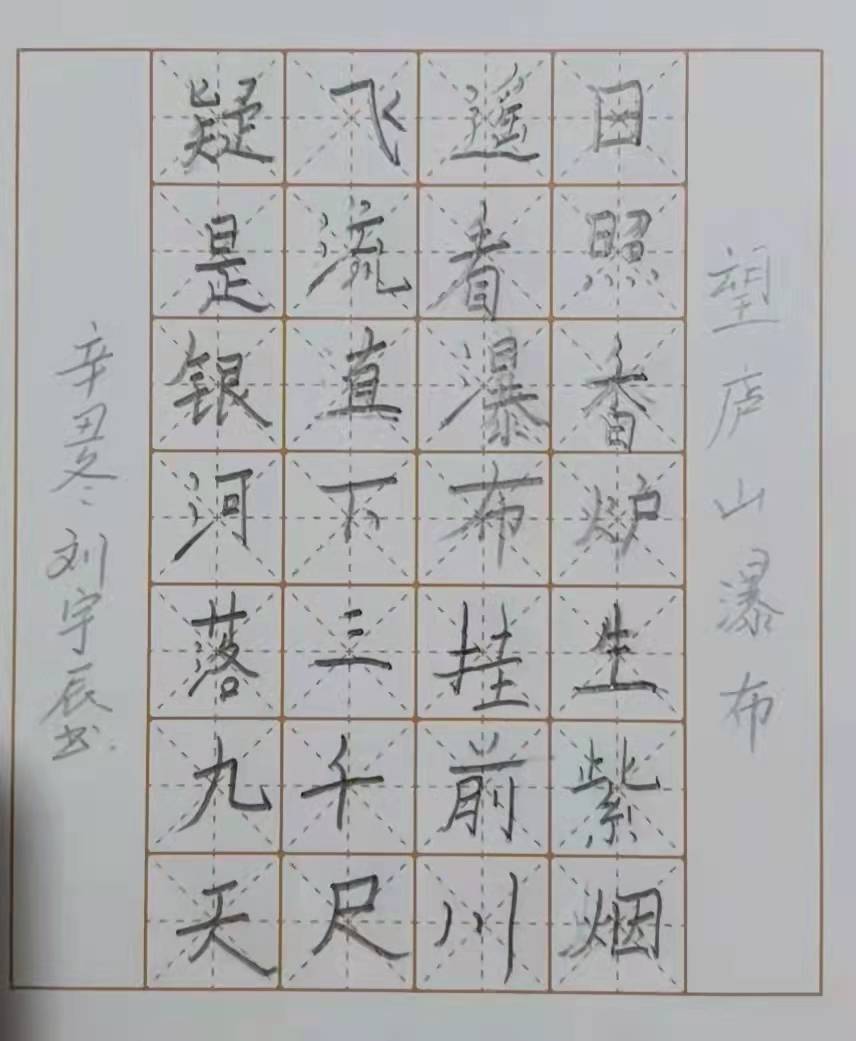 望庐山瀑布
日照香炉生紫烟
遥看瀑布挂前川
飞流直下三千尺
疑是银河落九天
辛丑冬刘宇辰书